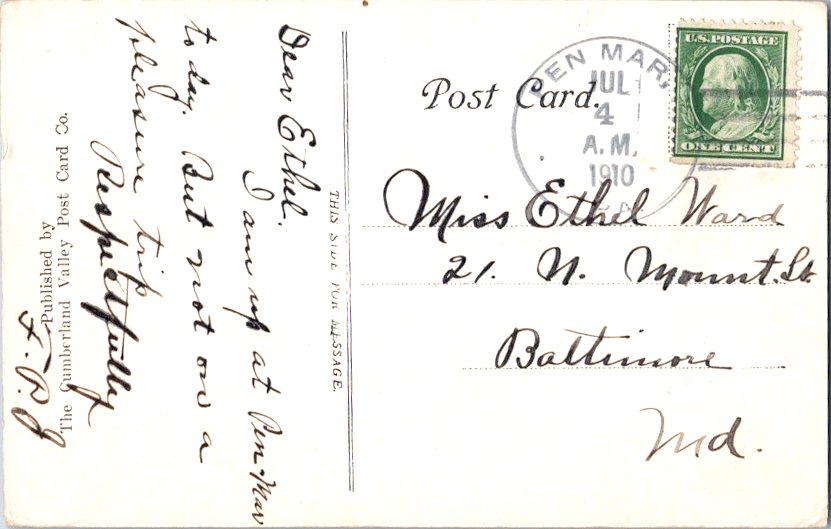 Dear Ethel.
I am up at Pen-Mar
today. But not on a
pleasure trip
Respectfully
Published by
The Cumberland Valley Post Card Co.
THIS SIDE FOR MESSAGE.
Post Card.
PEN MAR,
JUL
4
A.M.
1910
U.S. POSTAGE
ONE CENT
Miss Ethel Ward
21. N. Mount. St.
Baltimore
Md.